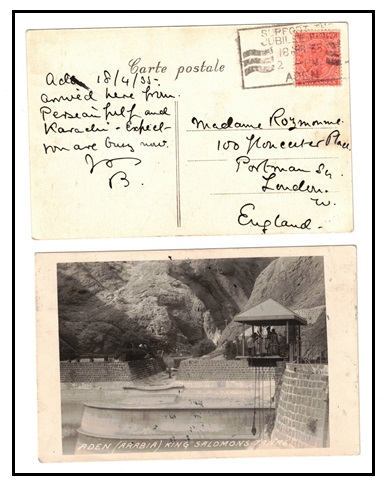 SUPPORT THE
JUBILEE
18 APR 35
2 PM
ADEN
Carte postale
Aden 18/4/35.
arrived here from
Persian Gulf and
Karachi - Expect
you are busy now.
B.
Madame Raymonne.
100 Gloucester Place
Portman Sq.
London.
W.
England.
ADEN (ARABIA) KING SALOMONS TANKS